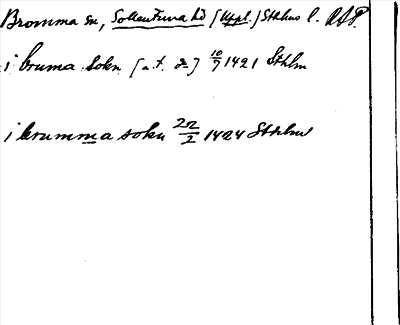 Bromma sn, Sollentuna hd (Uppl.) Sthlms l. RAP.
i bruma sokn (a.t. 2) 10/7 1421 Sthlm
i brumma sokn 22/2 1424 Sthlm